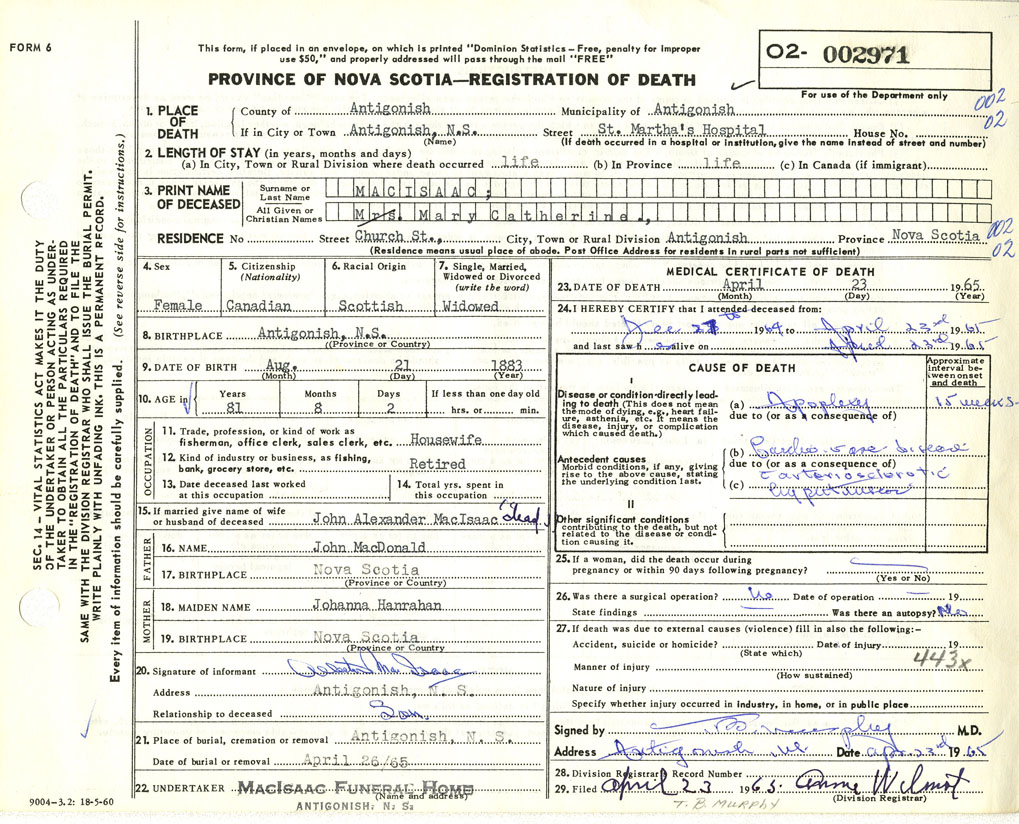 FORM 6
This form, if placed in an envelope, on which is printed "Dominion Statistics – Free, penalty for improper
use $50," and properly addressed will pass through the mail "FREE"
PROVINCE OF NOVA SCOTIA—REGISTRATION OF DEATH
02- 002971
For use of the Department only
002
02
SEC. 14 – VITAL STATISTICS ACT MAKES IT THE DUTY
OF THE UNDERTAKER OR PERSON ACTING AS UNDER-
TAKER TO OBTAIN ALL THE PARTICULARS REQUIRED
IN THE "REGISTRATION OF DEATH" AND TO FILE THE
SAME WITH THE DIVISION REGISTRAR WHO SHALL ISSUE THE BURIAL PERMIT.
WRITE PLAINLY WITH UNFADING INK. THIS IS A PERMANENT RECORD.
Every item of information should be carefully supplied. (See reverse side for instructions.)
1. PLACE OF DEATH
County of Antigonish Municipality of Antigonish
If in City or Town Antigonish, N.S. Street St. Martha's Hospital House No.
(Name) (If death occurred in a hospital or institution, give the name instead of street and number)
2. LENGTH OF STAY (in years, months and days)
(a) In City, Town or Rural Division where death occurred life (b) In Province life (c) In Canada (if immigrant)
3. PRINT NAME OF DECEASED
Surname or Last Name MACISAAC,
All Given or Christian Names Mrs. Mary Catherine.,
002
02
RESIDENCE No Street Church St., City, Town or Rural Division Antigonish Province Nova Scotia
(Residence means usual place of abode. Post Office Address for residents in rural parts not sufficient)
4. Sex
Female
5. Citizenship
(Nationality)
Canadian
6. Racial Origin
Scottish
7. Single, Married,
Widowed or Divorced
(write the word)
Widowed
8. BIRTHPLACE Antigonish, N.S.
(Province or Country)
9. DATE OF BIRTH Aug. 21 1883
(Month) (Day) (Year)
10. AGE in
Years Months Days If less than one day old
81 8 2 hrs. or min.
OCCUPATION
11. Trade, profession, or kind of work as
fisherman, office clerk, sales clerk, etc. Housewife
12. Kind of industry or business, as fishing,
bank, grocery store, etc. Retired
13. Date deceased last worked
at this occupation
14. Total yrs. spent in
this occupation
15. If married give name of wife
or husband of deceased John Alexander MacIsaac (Dead)
FATHER
16. NAME John MacDonald
17. BIRTHPLACE Nova Scotia
(Province or Country)
MOTHER
18. MAIDEN NAME Johanna Hanrahan
19. BIRTHPLACE Nova Scotia
(Province or Country)
20. Signature of informant MacIsaac
Address Antigonish, N. S.
Relationship to deceased Son.
21. Place of burial, cremation or removal Antigonish, N. S.
Date of burial or removal April 26/65
22. UNDERTAKER MACISAAC FUNERAL HOME
(Name and address)
ANTIGONISH, N. S.
9004-3.2: 18-5-60
MEDICAL CERTIFICATE OF DEATH
23. DATE OF DEATH April 23 1965
(Month) (Day) (Year)
24. I HEREBY CERTIFY that I attended deceased from:
Dec 27th 1964 to April 23rd 1965
and last saw h alive on April 23rd 1965
CAUSE OF DEATH
Approximate
interval be-
tween onset
and death
I
Disease or condition directly lead-
ing to death (This does not mean
the mode of dying, e.g., heart fail-
ure, asthenia, etc. It means the
disease, injury, or complication
which caused death.)
(a) Apoplexy 15 weeks
due to (or as a consequence of)
Antecedent causes
Morbid conditions, if any, giving
rise to the above cause, stating
the underlying condition last.
(b) Cardio vasc disease
due to (or as a consequence of)
(c) arteriosclerotic
hypertension
II
Other significant conditions
contributing to the death, but not
related to the disease or condi-
tion causing it.
25. If a woman, did the death occur during
pregnancy or within 90 days following pregnancy?
(Yes or No)
26. Was there a surgical operation? No Date of operation — 19
State findings — Was there an autopsy? No
27. If death was due to external causes (violence) fill in also the following:–
Accident, suicide or homicide? Date of injury 19
(State which) 443x
Manner of injury
(How sustained)
Nature of injury
Specify whether injury occurred in industry, in home, or in public place
Signed by Murphy M.D.
Address Antigonish, NS Date Apr 23rd 1965
28. Division Registrar's Record Number
29. Filed April 23 1965. Anne Wilmot
(Division Registrar)
T. B. MURPHY